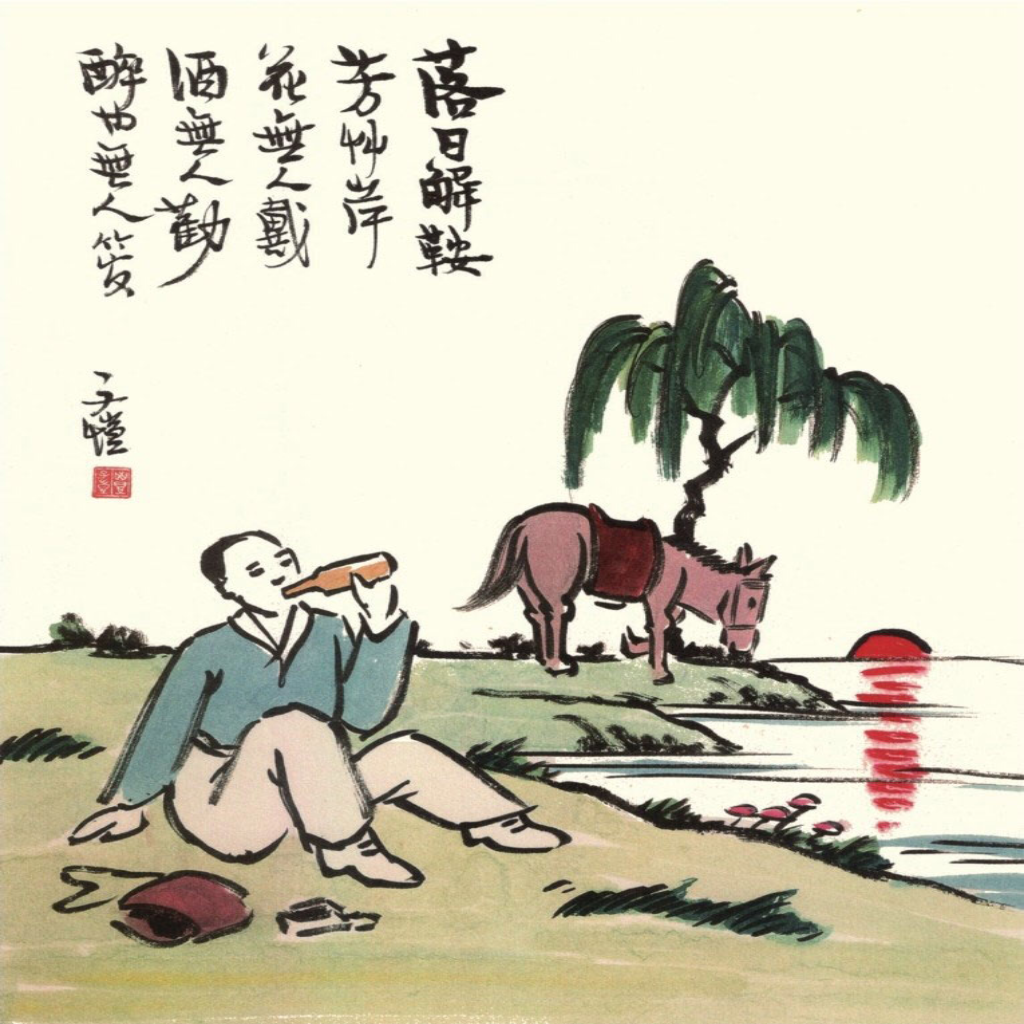 落日解鞍
芳艸岸
花無人戴
酒無人勸
醉也無人管
子愷